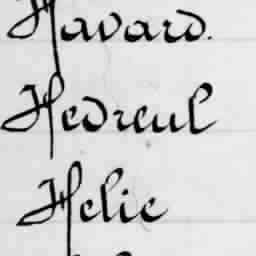 Havard.
Hedreul
Helie